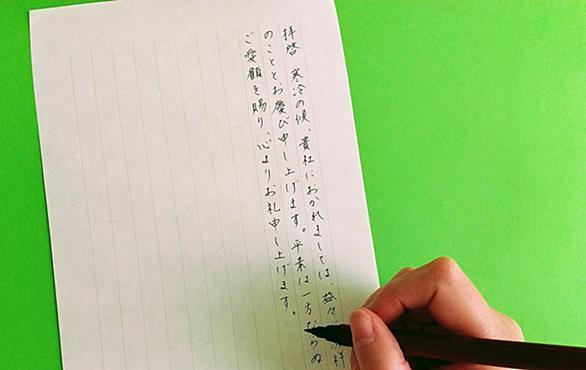 拝啓 寒冷の候、貴社におかれましては、益々 祥
のこととお慶び申し上げます。平素は一方ならぬ
ご愛顧を賜り、心よりお礼申し上げます。